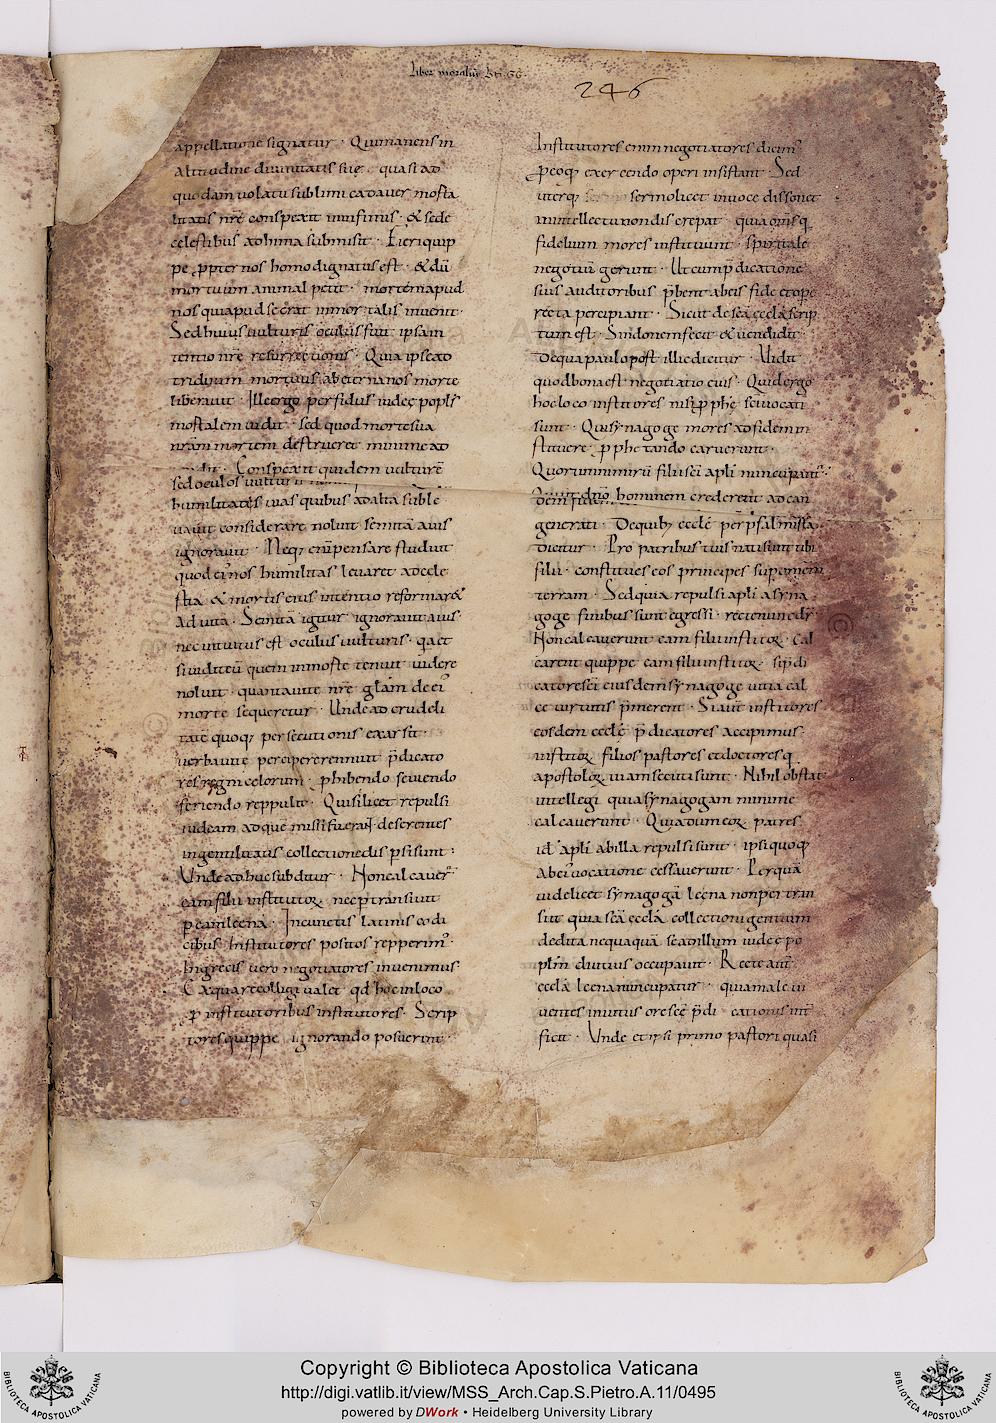 Liber moraliũ
246
appellatione signatur · Qui manens in
altitudine divinitatis suę · quasi ad
quodam volatu sublimi cadaver morta
litatis nr̃e conspexit in infimis · & sede
celestibus ad hima submisit · Fieri quip
pe ꝓpter nos homo dignatus est · & dũ
mortuum animal petiit · mortem apud
nos qui apud se erat inmortalis invenit ·
Sed huius vulturis oculus fuit ipsa in
tentio nr̃e resurrectionis · Quia ipse ad
triduum mortuus ab eterna nos morte
liberavit · Ille ergo perfidus iudeę popl's
mortalem vidit · sed quod morte sua
nr̃am mortem destrueret minime ad
Conspexit quidem vulturẽ
sed oculos vulturis
humilitatis vias quibus ad alta suble
vavit considerare noluit semitã avis
ignoravit · Neq; enĩ pensare studuit
quod ei' nos humilitas levaret ad cęle
stia & mortis eius intentio reformar&
ad vitã · Semitã igitur ignoravit avis
nec intuitus est oculus vulturis · q̃a et
si vidit eũ quem in morte tenuit videre
noluit · quanta vite nr̃e gl̃am de ei'
morte sequeretur · Unde ad crudeli
tatẽ quoq; persecutionis exarsit ·
verba vite percipere rennuit p̃dicato
res regni celorum · ꝓhibendo seviendo
feriendo reppulit · Qui scilicet repulsi
iudeam ad quẽ missi fuerant deserentes
in gentilitatis collectione dispersi sunt ·
Unde adhuc subditur · Non calcaver̃
eam filii institutoꝝ nec ptransivit
p eam leena · In cunctis latinis codi
cibus institutores positos repperim' ·
In grecis vero negotiatores invenimus ·
Ex qua re colligi valet qđ hoc in loco
ꝓ institutoribus institutores · Scrip
tores quippe ignorando posuerunt ·
Institutores enim negotiatores dicim'
ꝓ eo q; exercendo operi insistant · Sed
uterq; sermo licet in voce dissonet
in intellectu non discrepat · quia om̃s q
fidelium mores instituunt · spiritale
negotiũ gerunt · Ut cum p̃dicatione
suis auditoribus p̃bent ab eis fidẽ et ope
recta percipiant · Sicut de scã eccl̃a scrip
tum est · Sindonem fecit & vendidit
De qua paulo post illic dicitur · Vidit
quod bona est negotiatio eius · Quid ergo
hoc loco institores nisi ꝓphe sc̃i vocati
sunt · Qui synagoge mores ad fidem in
stituere ꝓphetando curaverunt ·
Quorum nimirũ filii sc̃i apl̃i nuncupant'
hominem crederent ad eandem fidem
generati · De quib; eccl̃e per psalmista
dicitur · Pro patribus tuis nati sunt tibi
filii · constitues eos principes sup omnem
terram · Sed quia repulsi apl̃i a syna
goge finibus sunt egressi · recte nunc dr̃
Non calcaverunt eam filii institoꝝ · Cal
carent quippe eam filii institoꝝ · si p̃di
catores sc̃i eiusdem synagoge vitia cal
ce virtutis p̃merent · Si aut̃ institores
eosdem eccl̃e p̃dicatores accipimus
institoꝝ filios pastores et doctores q
apostoloꝝ viam secuti sunt · Nihil obstat
intellegi quia synagogam minime
calcaverunt · Quia dum eoꝝ patres
id ẽ apl̃i ab illa repulsi sunt · ipsi quoq;
ab ei' vocatione cessaverunt · Per quã
videlicet synagogã leena non pertran
siit quia scã eccl̃a collectioni gentium
dedita nequaquã se ad illum iudeę po
pl̃m diutius occupavit · Recte aut̃
eccl̃a leena nuncupatur · quia male vi
ventes in vitiis ore sc̃ę p̃dicationis int̃
ficit · Unde et ipsi primo pastori quasi
Copyright © Biblioteca Apostolica Vaticana
http://digi.vatlib.it/view/MSS_Arch.Cap.S.Pietro.A.11/0495
powered by DWork • Heidelberg University Library
BIBLIOTECA APOSTOLICA VATICANA
BIBLIOTECA APOSTOLICA VATICANA